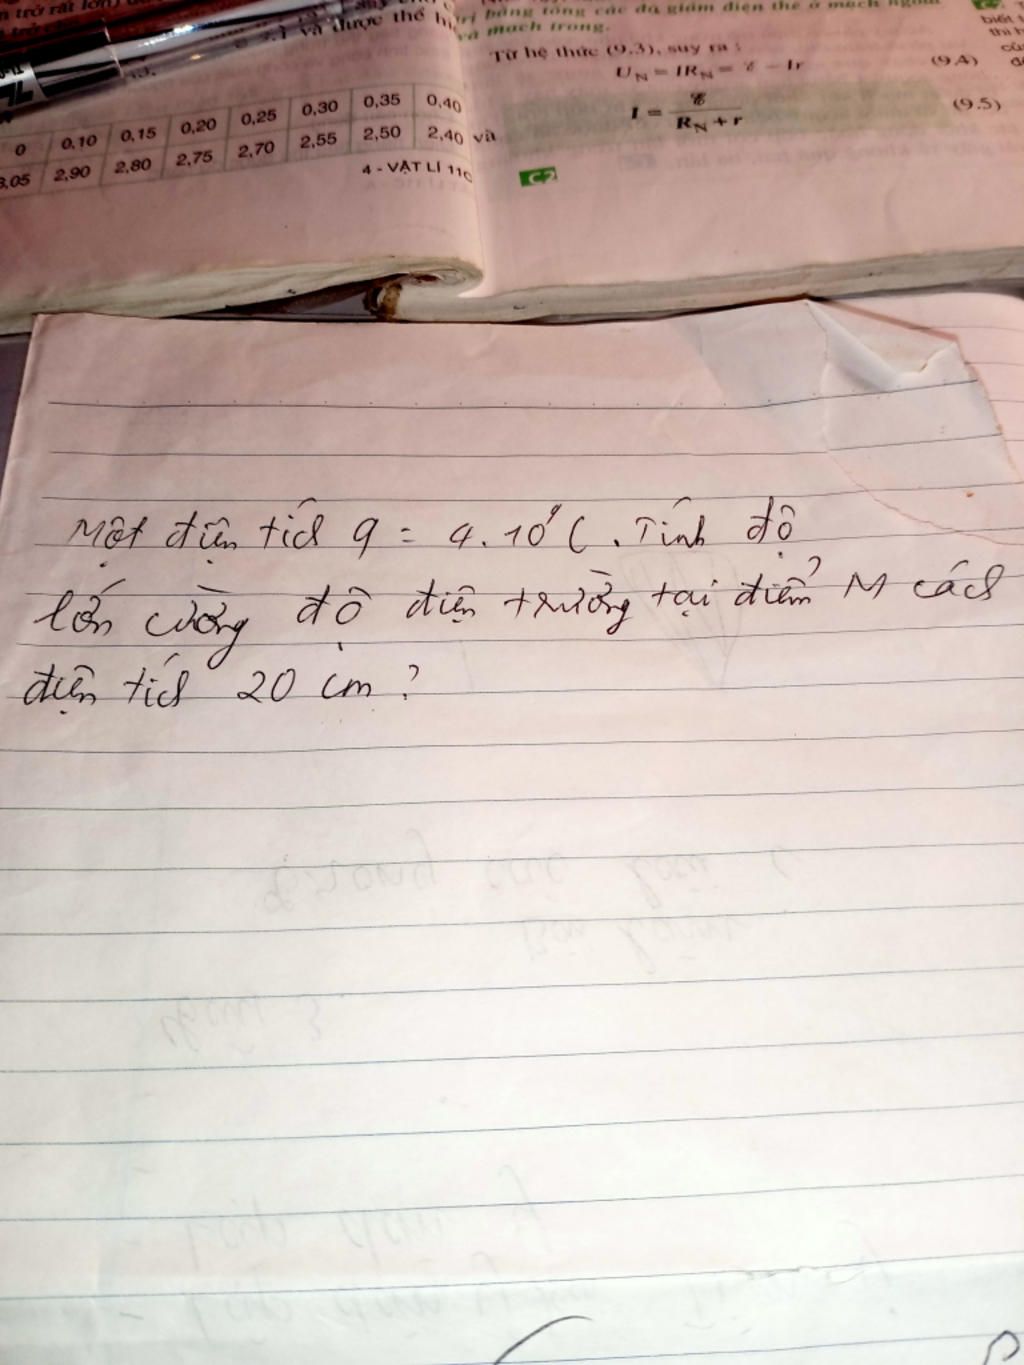 trở rất lớn)
và được thể hi
0 0,10 0,15 0,20 0,25 0,30 0,35 0,40
3,05 2,90 2,80 2,75 2,70 2,55 2,50 2,40
4 - VẬT LÍ 11C
trị bằng tổng các độ giảm điện thế ở mạch ngoài
và mạch trong.
Từ hệ thức (9.3), suy ra :
U_N = IR_N = ℰ – Ir (9.4)
và I = ℰ / (R_N + r) (9.5)
C2
biết
thì
Một điện tích q = 4.10⁹ C. Tính độ
lớn cường độ điện trường tại điểm M cách
điện tích 20 cm ?